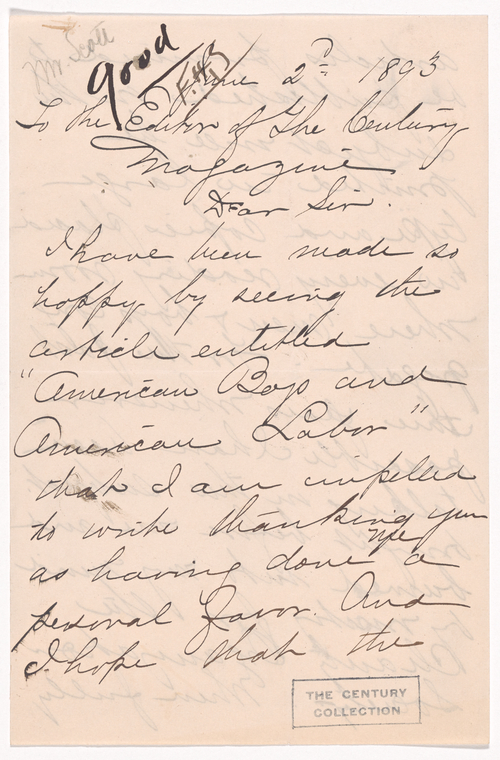 Mr. Scott
good
June 2d 1893
To the Editor of The Century
Magazine
Dear Sir.
I have been made so
happy by seeing the
article entitled
"American Boys and
American Labor"
that I am impelled
to write thanking you
me
as having done a
personal favor. And
I hope that the
THE CENTURY
COLLECTION